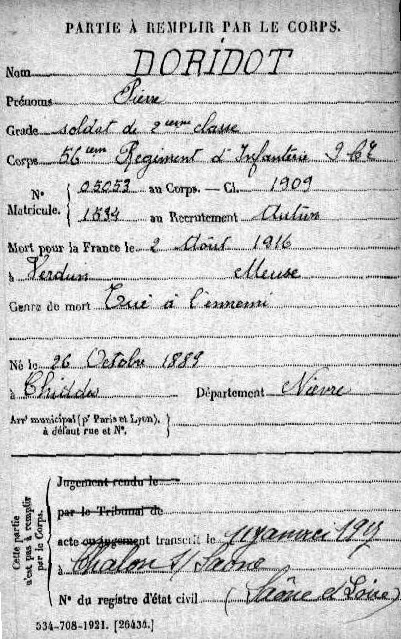 PARTIE À REMPLIR PAR LE CORPS.
Nom DORIDOT
Prénoms Pierre
Grade soldat de 2eme classe
Corps 56eme Régiment d'Infanterie
N° Matricule. { 05053 au Corps. — Cl. 1909
1534 au Recrutement Autun
Mort pour la France le 2 Août 1916
à Verdun Meuse
Genre de mort Tué à l'ennemi
Né le 26 Octobre 1889
à Chiddes Département Nièvre
Arrt municipal (pr Paris et Lyon), à défaut rue et N°.
Cette partie n'est pas à remplir par le Corps.
Jugement rendu le
par le Tribunal de
acte ou jugement transcrit le janvier 1917
à Chalon s/ Saône
N° du registre d'état civil (Saône et Loire)
534-708-1921. [26434.]